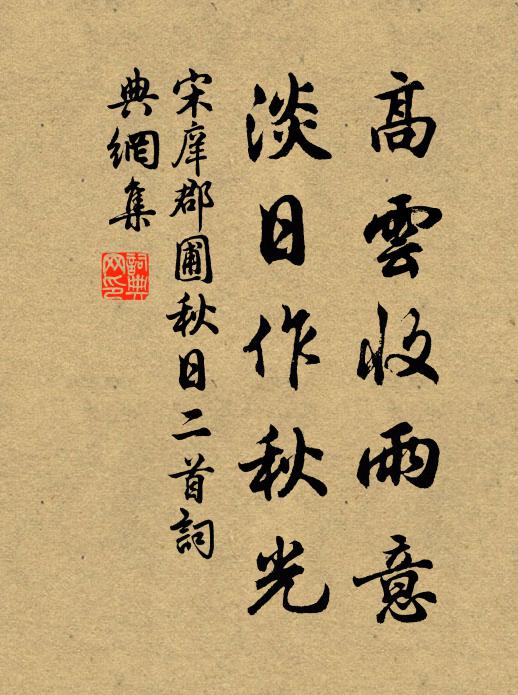 高雲收雨意
淡日作秋光
宋庠郡圃秋日二首詞
典網集
詞典
网印